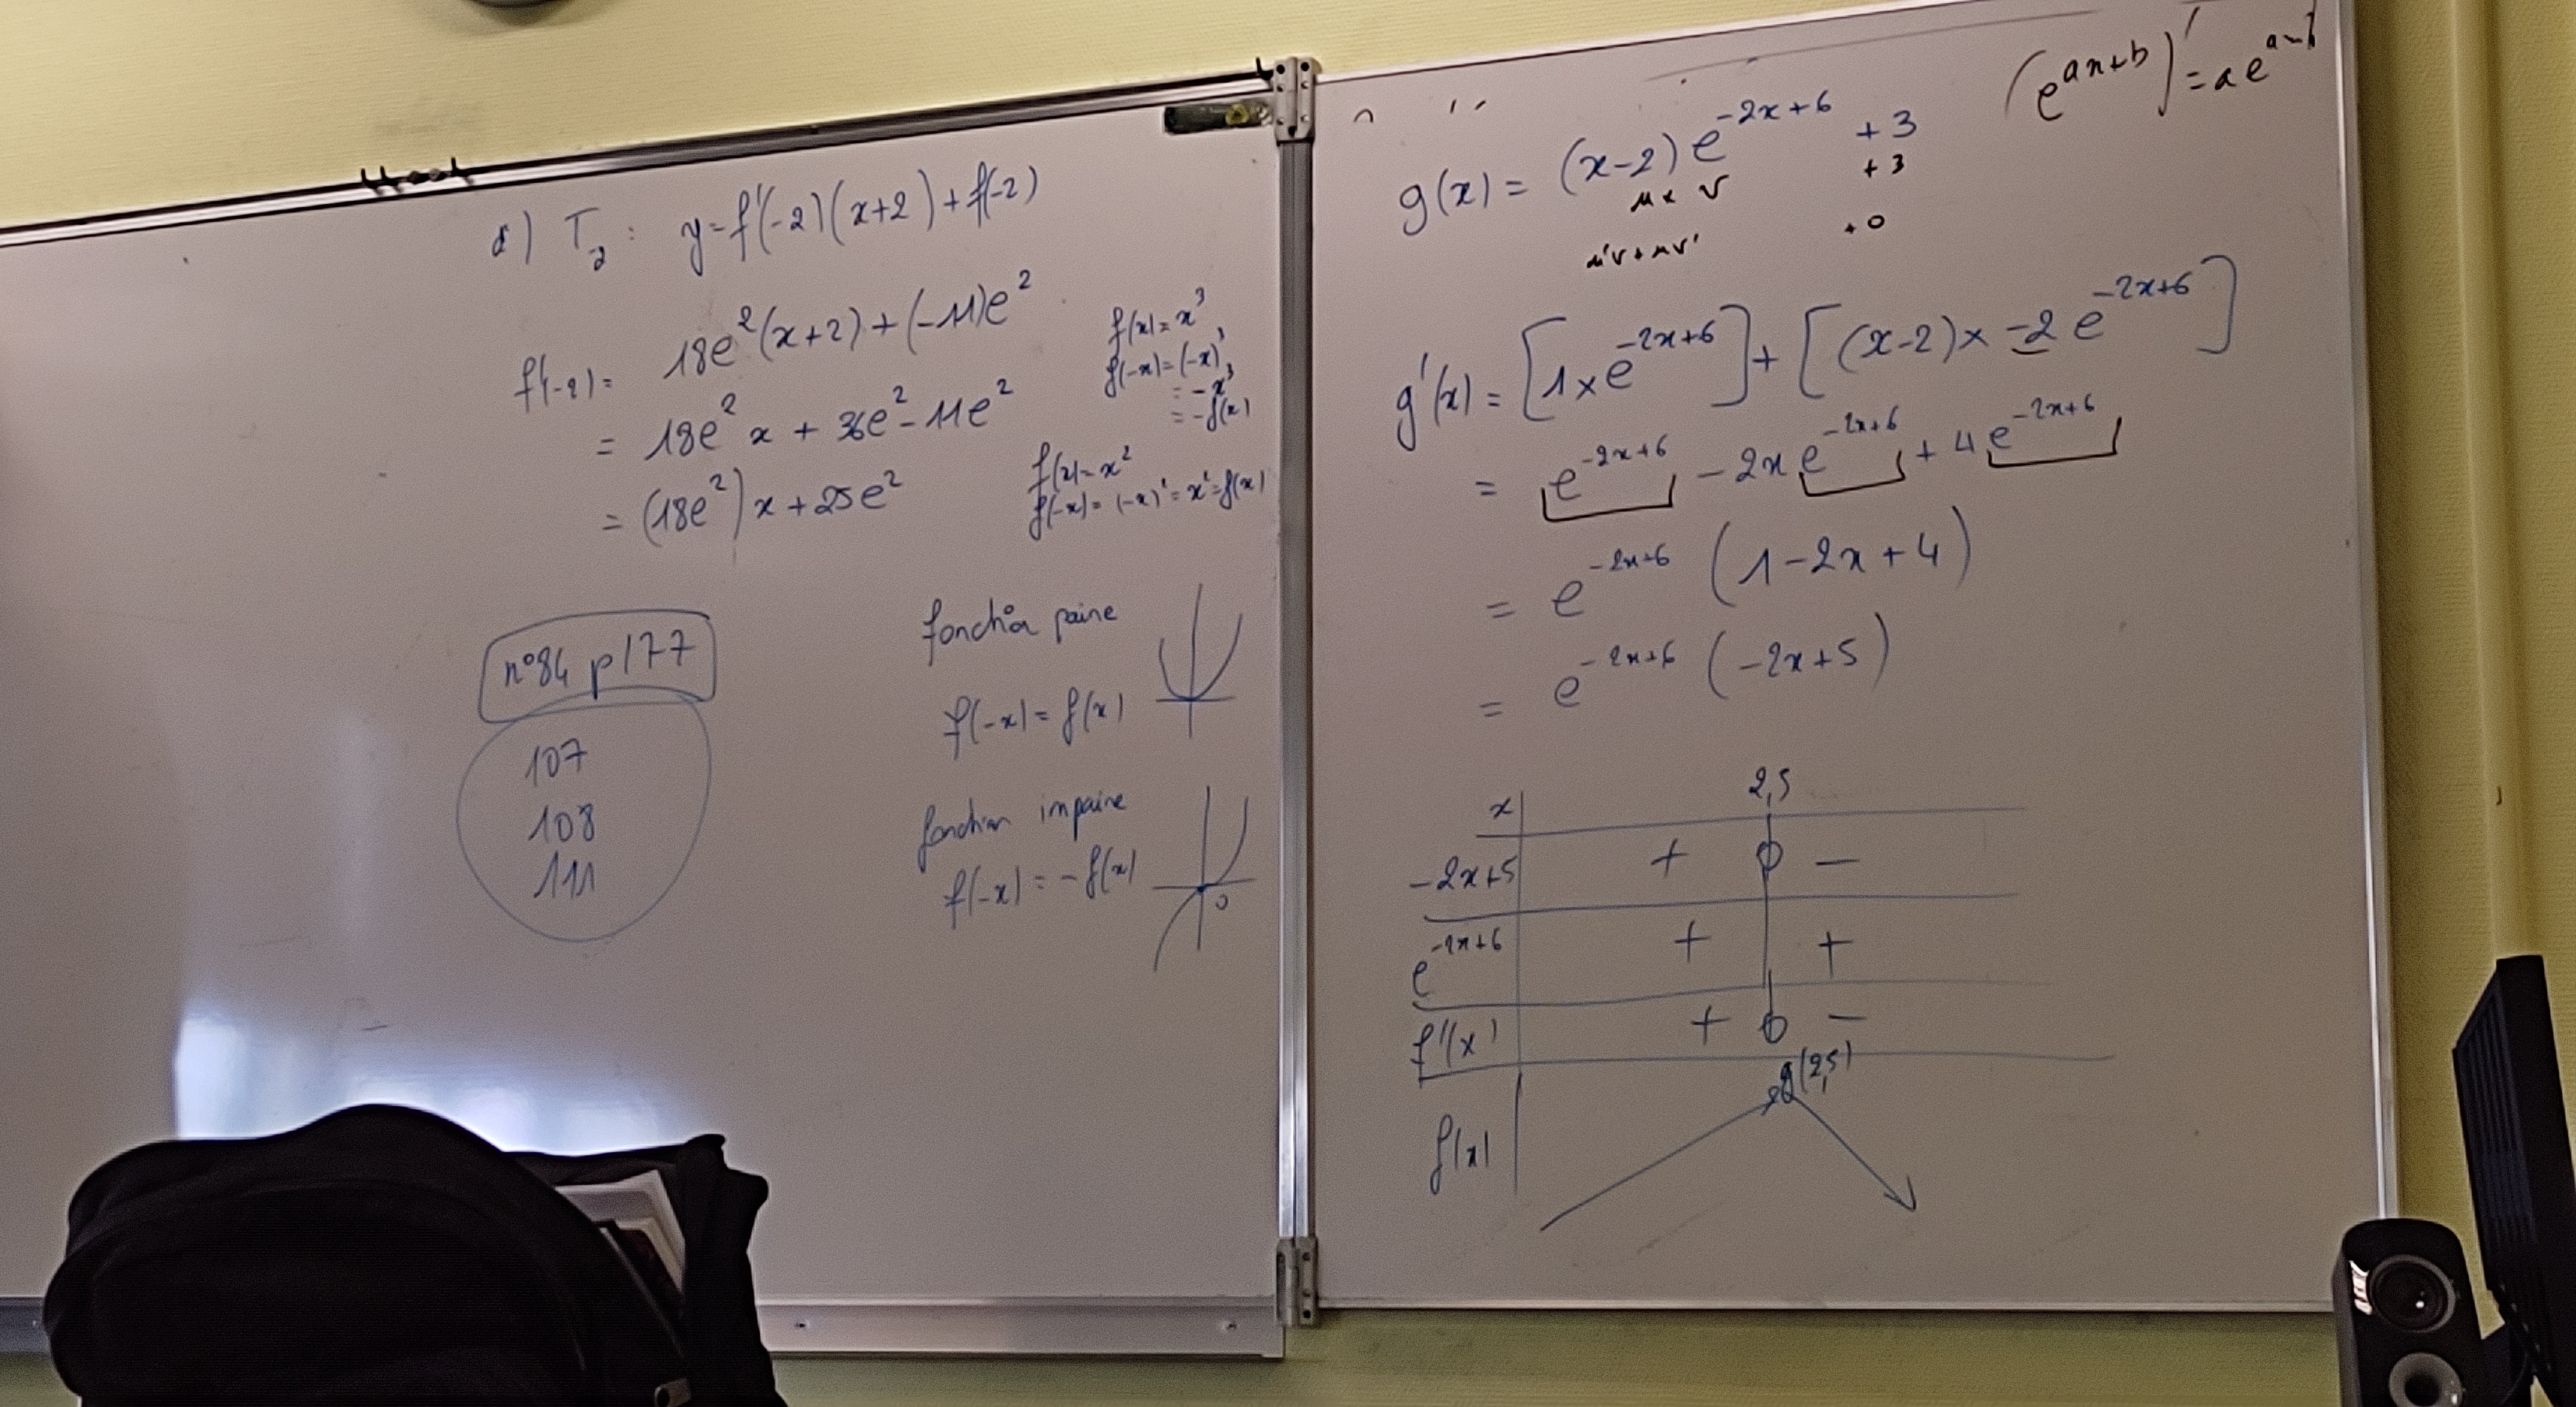 d) T₋₂ : y = f'(-2)(x+2) + f(-2)
f'(-2) = 18e²(x+2) + (-11)e²
= 18e² x + 36e² - 11e²
= (18e²) x + 25e²
f(x) = x³
f(-x) = (-x)³
= -x³
= -f(x)
f(x) = x²
f(-x) = (-x)² = x² = f(x)
n°84 p177
107
108
111
fonction paire
f(-x) = f(x)
fonction impaire
f(-x) = -f(x)
0
(e^(ax+b))' = a e
g(x) = (x-2) e^(-2x+6) + 3
u × v + 3
u'v + uv' + 0
g'(x) = [1 × e^(-2x+6)] + [(x-2) × -2 e^(-2x+6)]
= e^(-2x+6) - 2x e^(-2x+6) + 4 e^(-2x+6)
= e^(-2x+6) (1 - 2x + 4)
= e^(-2x+6) (-2x + 5)
x 2,5
-2x+5 + 0 -
e^(-2x+6) + +
f'(x) + 0 -
g(2,5)
f(x)